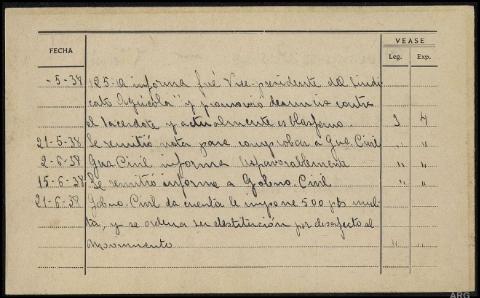 VEASE
FECHA Leg. Exp.
-5-38 125-10 informa fué Vice-presidente del Sindi
cato Agricola" y promovió denuncia contra
el Sacerdote y actualmente es blasfemo. 3 4
21-5-38 Se remitió nota para comprobar a Gua. Civil " "
2-6-38 Gua Civil informa desfavorablemente " "
15-6-38 Se remitió informe a Gobno. Civil " "
21-6-38 Gobno. Civil da cuenta le impone 500 pts mul
ta, y se ordena su destitución por desafecto al
Movimiento " "
ARG